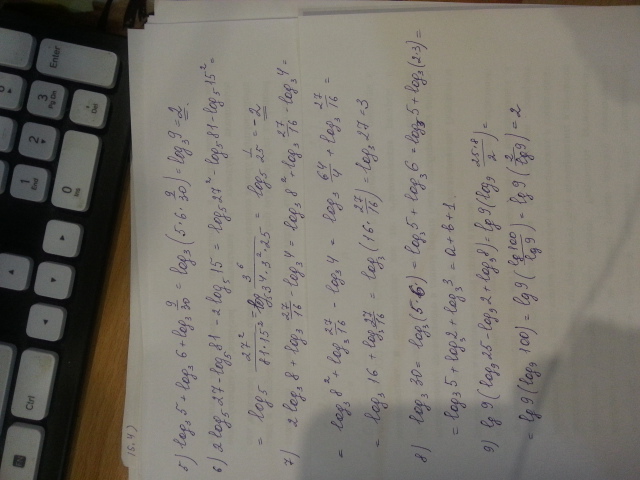 15.4)
5) log₃5 + log₃6 + log₃ 9/30 = log₃(5·6· 9/30) = log₃9 = 2.
6) 2log₅27 - log₅81 - 2log₅15 = log₅27² - log₅81 - log₅15² =
= log₅ 27²/(81·15²) = log₅ 3⁶/(3⁴·3²·25) = log₅ 1/25 = -2
7) 2log₃8 + log₃ 27/16 - log₃4 = log₃8² + log₃ 27/16 - log₃4 =
= log₃8² + log₃ 27/16 - log₃4 = log₃ 64/4 + log₃ 27/16 =
= log₃16 + log₃ 27/16 = log₃(16· 27/16) = log₃27 = 3
8) log₃30 = log₃(5·6) = log₃5 + log₃6 = log₃5 + log₃(2·3) =
= log₃5 + log₃2 + log₃3 = a + b + 1.
9) lg9(log₉25 - log₉2 + log₉8) = lg9(log₉ 25·8/2) =
= lg9(log₉100) = lg9(lg100/lg9) = lg9(2/lg9) = 2
Enter
Ctrl
3
PgDn
Del
2
1
End
0
Ins